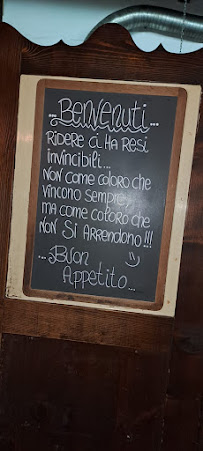 ...Benvenuti...
Ridere ci ha resi
invincibili...
non come coloro che
vincono sempre,
ma come coloro che
non si arrendono!!!
...Buon
Appetito...